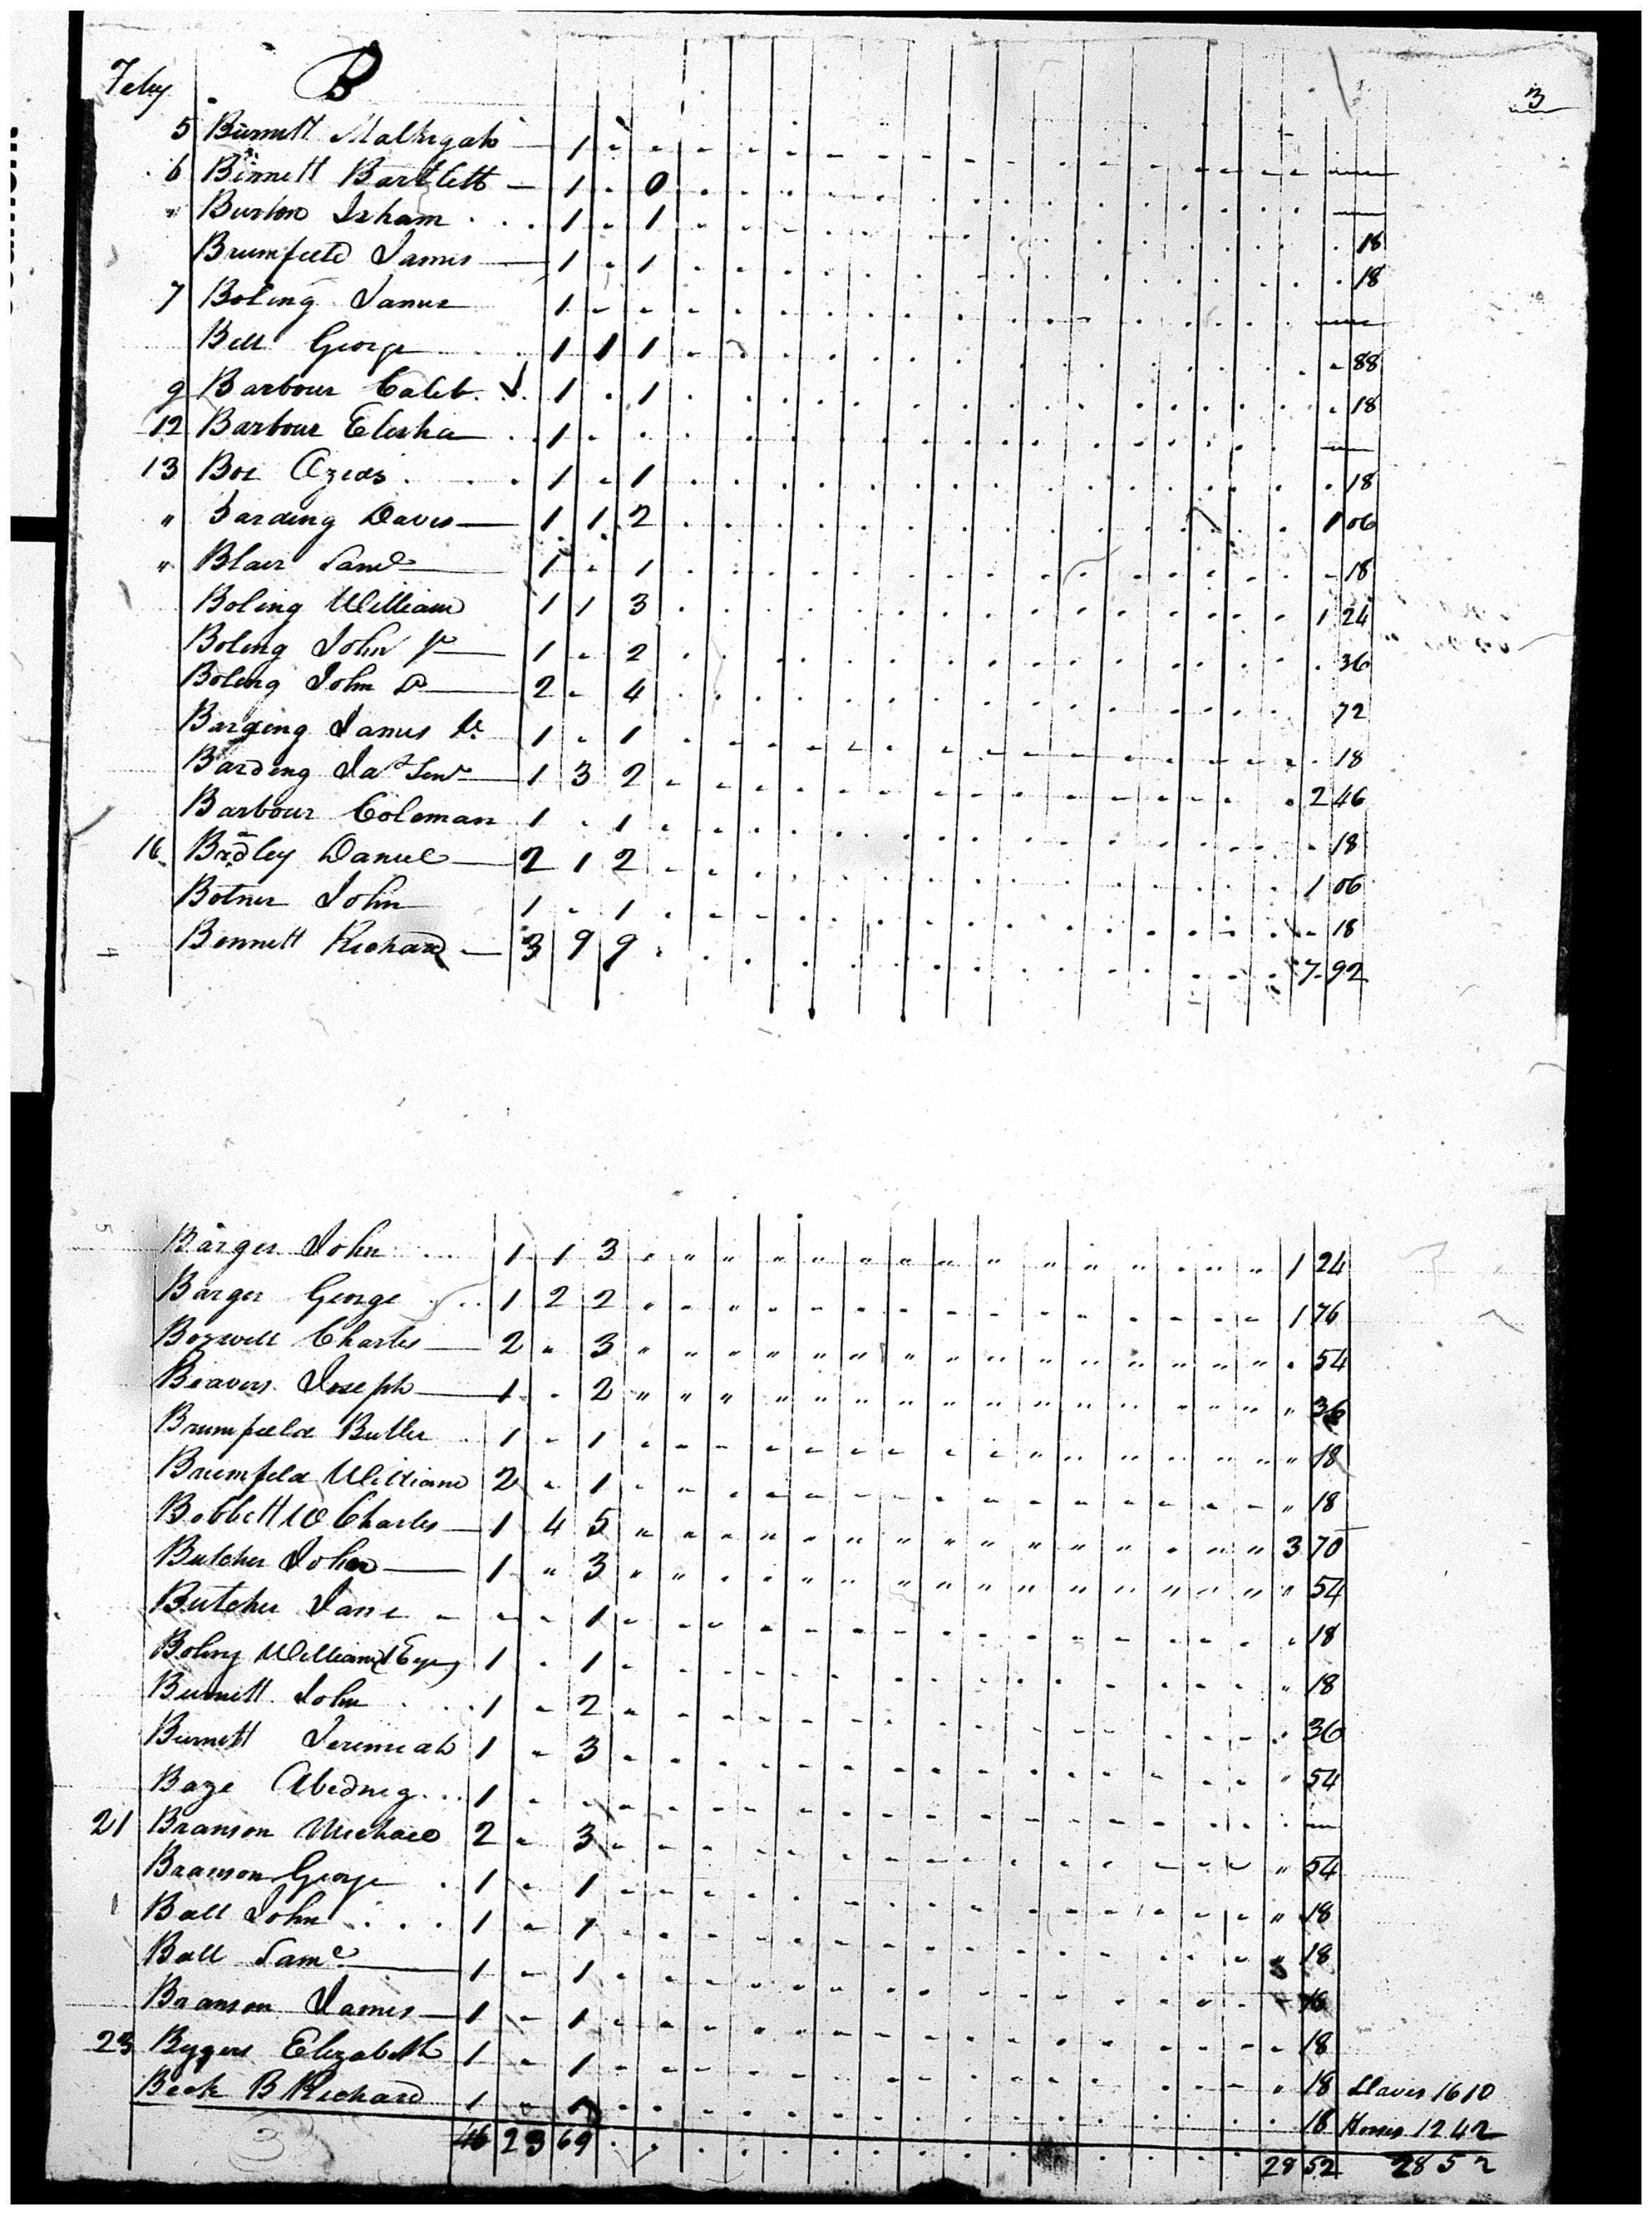 Feby B 3
5 Burnett Malkigah 1 - - - - - - - - - - - - - - - —
6 Binnett Bartlett — 1 - 0 . . . . . . . . . . . . . —
" Burton Isham . . . 1 - 1 . . . . . . . . . . . . . 18
Brumfield James — 1 - 1 . . . . . . . . . . . . . 18
7 Boling James 1 - - - . . . . . . . . . . . . —
Bell George . . . 1 1 1 . . . . . . . . . . . . - 88
9 Barbour Caleb . . 1 . 1 . . . . . . . . . . . . . 18
12 Barbour Elisha . . 1 - . . . . . . . . . . . . . —
13 Boz Ozias . . . 1 - 1 . . . . . . . . . . . . . 18
" Barding Davis — 1 1 2 . . . . . . . . . . . . 1 06
" Blair Saml — 1 - 1 . . . . . . . . . . . . - 18
Boling William 1 1 3 . . . . . . . . . . . . 1 24
Boling John Jr — 1 - 2 . . . . . . . . . . . . . 36
Boling John Sr — 2 - 4 . . . . . . . . . . . . 72
Barding James Jr. 1 - 1 . . . . . . . . . . . . - 18
Barding Jas Senr — 1 3 2 - - - - - - - - - - - - - 2 46
Barbour Coleman 1 . 1 . . . . . . . . . . . . . - 18
16 Badley Daniel — 2 1 2 - - . . . . . . . . . . . 1 06
Botner John 1 - 1 . . . . . . . . . . . . . - 18
Bennett Richard — 3 9 9 . . . . . . . . . . . . . 7 92
Barger John . . . 1 1 3 " " " " " " " " " " " " " " 1 24
Barger George . . 1 2 2 " " " - - - - - - - - - - - 1 76
Bozwell Charles — 2 " 3 " " " " " " " " " " " " " " . 54
Beavers Joseph — 1 - 2 " " " " " " " " " " " " " " " 36
Brumfield Butler . 1 - 1 - - - - - - - - " " " " " " " 18
Brumfield William 2 - 1 - - - - - - - - - - - - - - " 18
Bobbett W Charles — 1 4 5 " " " " " " " " " " " " " " 3 70
Butcher John — 1 " 3 " " " " " " " " " " " " " " " 54
Butcher Jane - - - 1 - - - - - - - - - - - - - - " 18
Boling William 1 - 1 - - - - - - - - - - - - - - " 18
Burnett John . . . 1 - 2 - - - - - - - - - - - - - - " 36
Burnett Jeremiah 1 - 3 - - - - - - - - - - - - - - " 54
Baze Abedneg . . . 1 - - - - - - - - - - - - - - - . —
21 Branson Michael 2 - 3 - - - - - - - - - - - - - - " 54
Branson George . 1 - 1 - - - - - - - - - - - - - - " 18
Ball John . . . 1 - 1 - - - - - - - - - - - - - - " 18
Ball Saml — 1 - 1 - - - - - - - - - - - - - - 18
Branson James — 1 - 1 - - - - - - - - - - - - - - - 18
23 Bygers Elizabeth 1 - 1 - - - - - - - - - - - - - - " 18 Slaves 1610
Beck B Richard 1 - 1 - - - - - - - - - - - - - - . 18 Horses 1242
46 23 69 . . . . . . . . . . . . . . 28 52 2852
3